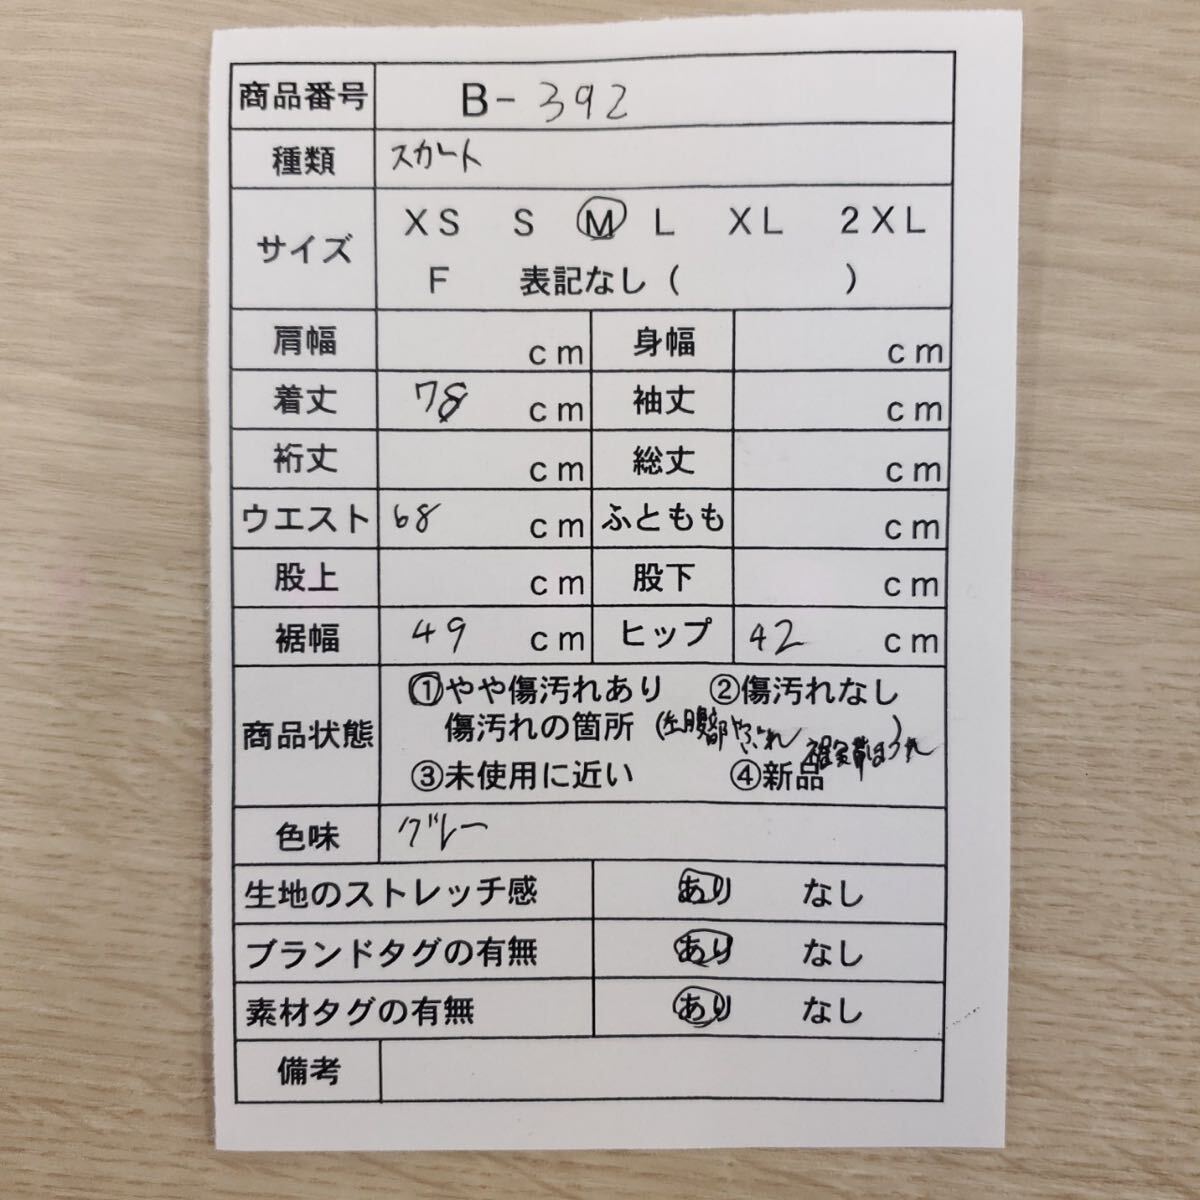 商品番号 B-392
種類 スカート
サイズ XS S M L XL 2XL
F 表記なし( )
肩幅 cm 身幅 cm
着丈 78 cm 袖丈 cm
裄丈 cm 総丈 cm
ウエスト 68 cm ふともも cm
股上 cm 股下 cm
裾幅 49 cm ヒップ 42 cm
商品状態 ①やや傷汚れあり ②傷汚れなし
傷汚れの箇所(左腹部やぶれ ほつれ)
③未使用に近い ④新品
色味 グレー
生地のストレッチ感 あり なし
ブランドタグの有無 あり なし
素材タグの有無 あり なし
備考